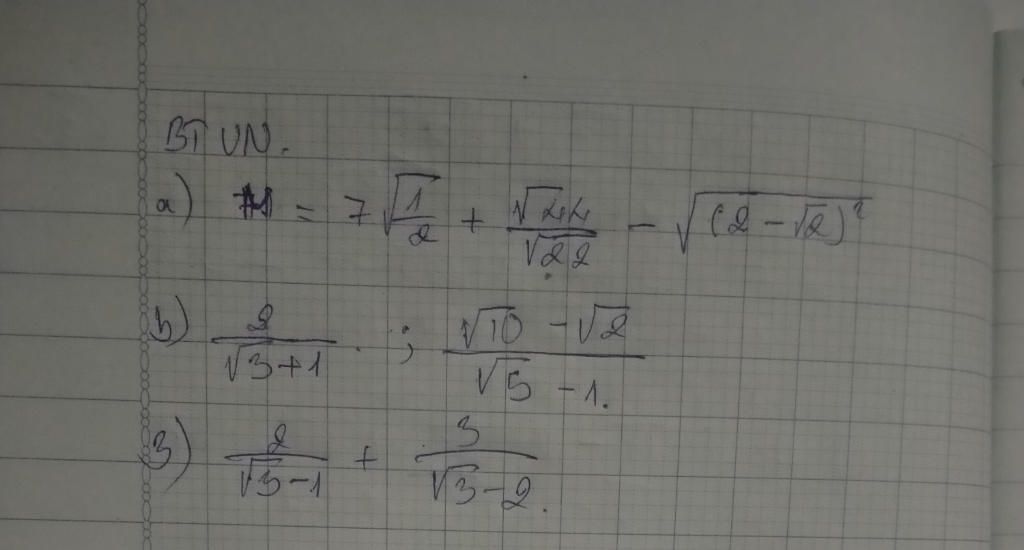 BT VN.
a) M = 7√(1/2) + √44/√22 − √((2 − √2)²)
b) 2/(√3+1) ; (√10 − √2)/(√5 − 1).
3) 2/(√3−1) + 3/(√3−2).